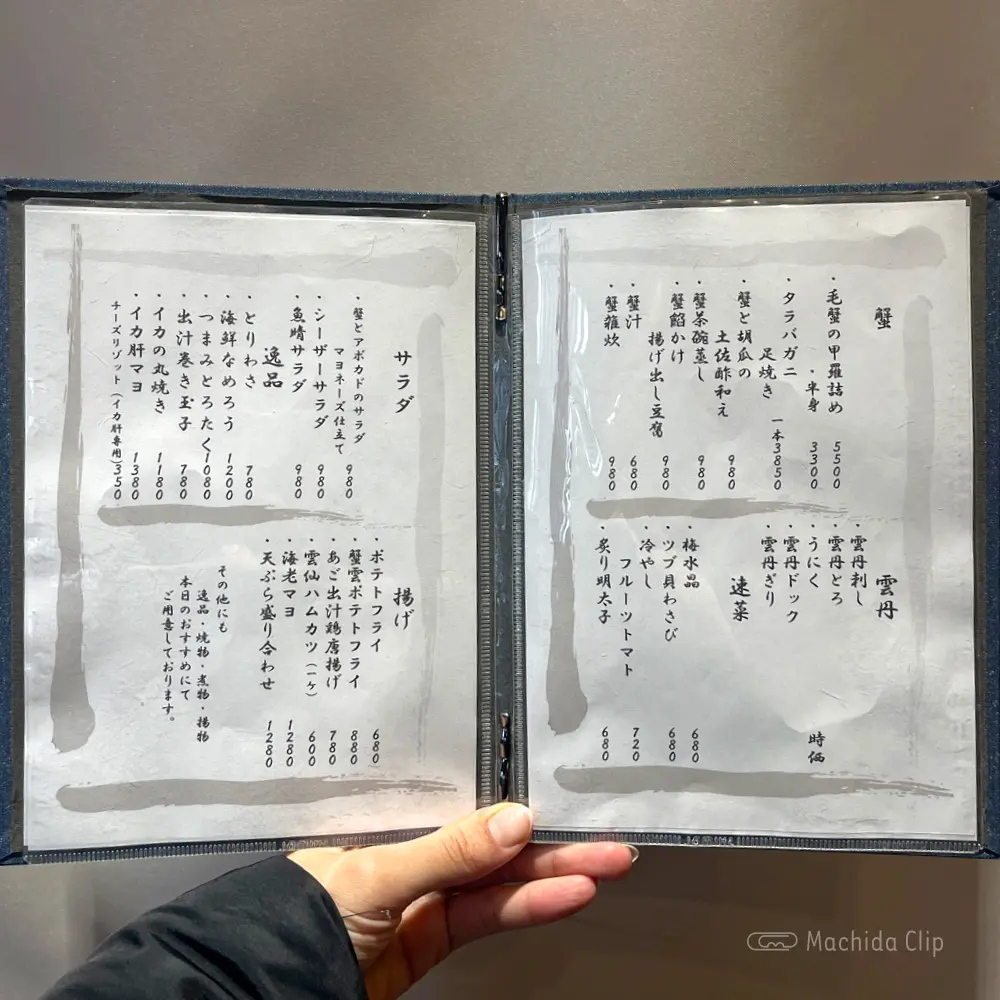 蟹
・毛蟹の甲羅詰め 5500
・半身 3300
・タラバガニ
足焼き 一本3850
・蟹と胡瓜の
土佐酢和え 980
・蟹茶碗蒸し 980
・蟹餡かけ
揚げ出し豆腐 980
・蟹汁 680
・蟹雑炊 980
雲丹
・雲丹刺し
・雲丹とろ
・うにく 時価
・雲丹ドック
・雲丹ぎり
速菜
・梅水晶 680
・ツブ貝わさび 680
・冷やし
フルーツトマト 720
・炙り明太子 680
サラダ
・蟹とアボカドのサラダ
マヨネーズ仕立て 980
・シーザーサラダ 980
・魚晴サラダ 980
逸品
・とりわさ 780
・海鮮なめろう 1200
・つまみとろたく 1080
・出汁巻き玉子 780
・イカの丸焼き 1180
・イカ肝マヨ 1380
チーズリゾット(イカ肝専用) 350
揚げ
・ポテトフライ 680
・蟹雲ポテトフライ 880
・あご出汁鶏唐揚げ 780
・雲仙ハムカツ(一ケ) 600
・海老マヨ 1280
・天ぷら盛り合わせ 1280
その他にも
逸品・焼物・煮物・揚物
本日のおすすめにて
ご用意しております。
Machida Clip